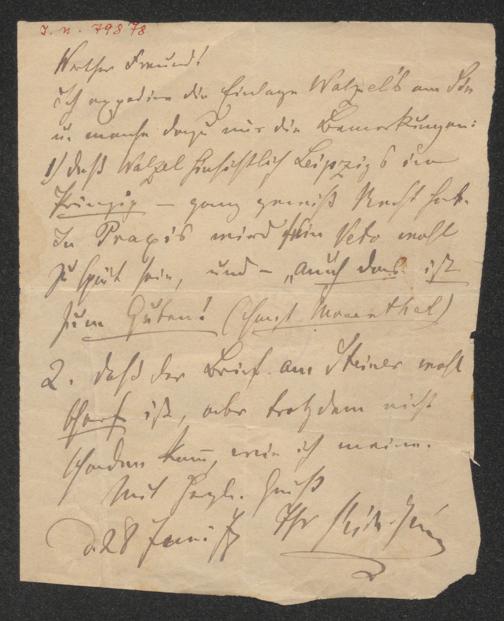 I. N. 79878
Werther Freund!
Ich expedire die Einlage Walzel's am Sie
u. mache dazu nur die Bemerkungen:
1) daß Walzel hinsichtlich Leipzigs im
Prinzip – ganz gewiß Recht hat.
In Praxis wird sein Veto wohl
zu spät sein, und – „auch das ist
zum Guten! (sagt Mosenthal)
2. daß der Brief an Steiner wohl
scharf ist, aber trotzdem nicht
schaden kann, wie ich meine.
Mit herzl. Gruß
d. 28 Juni Ihr